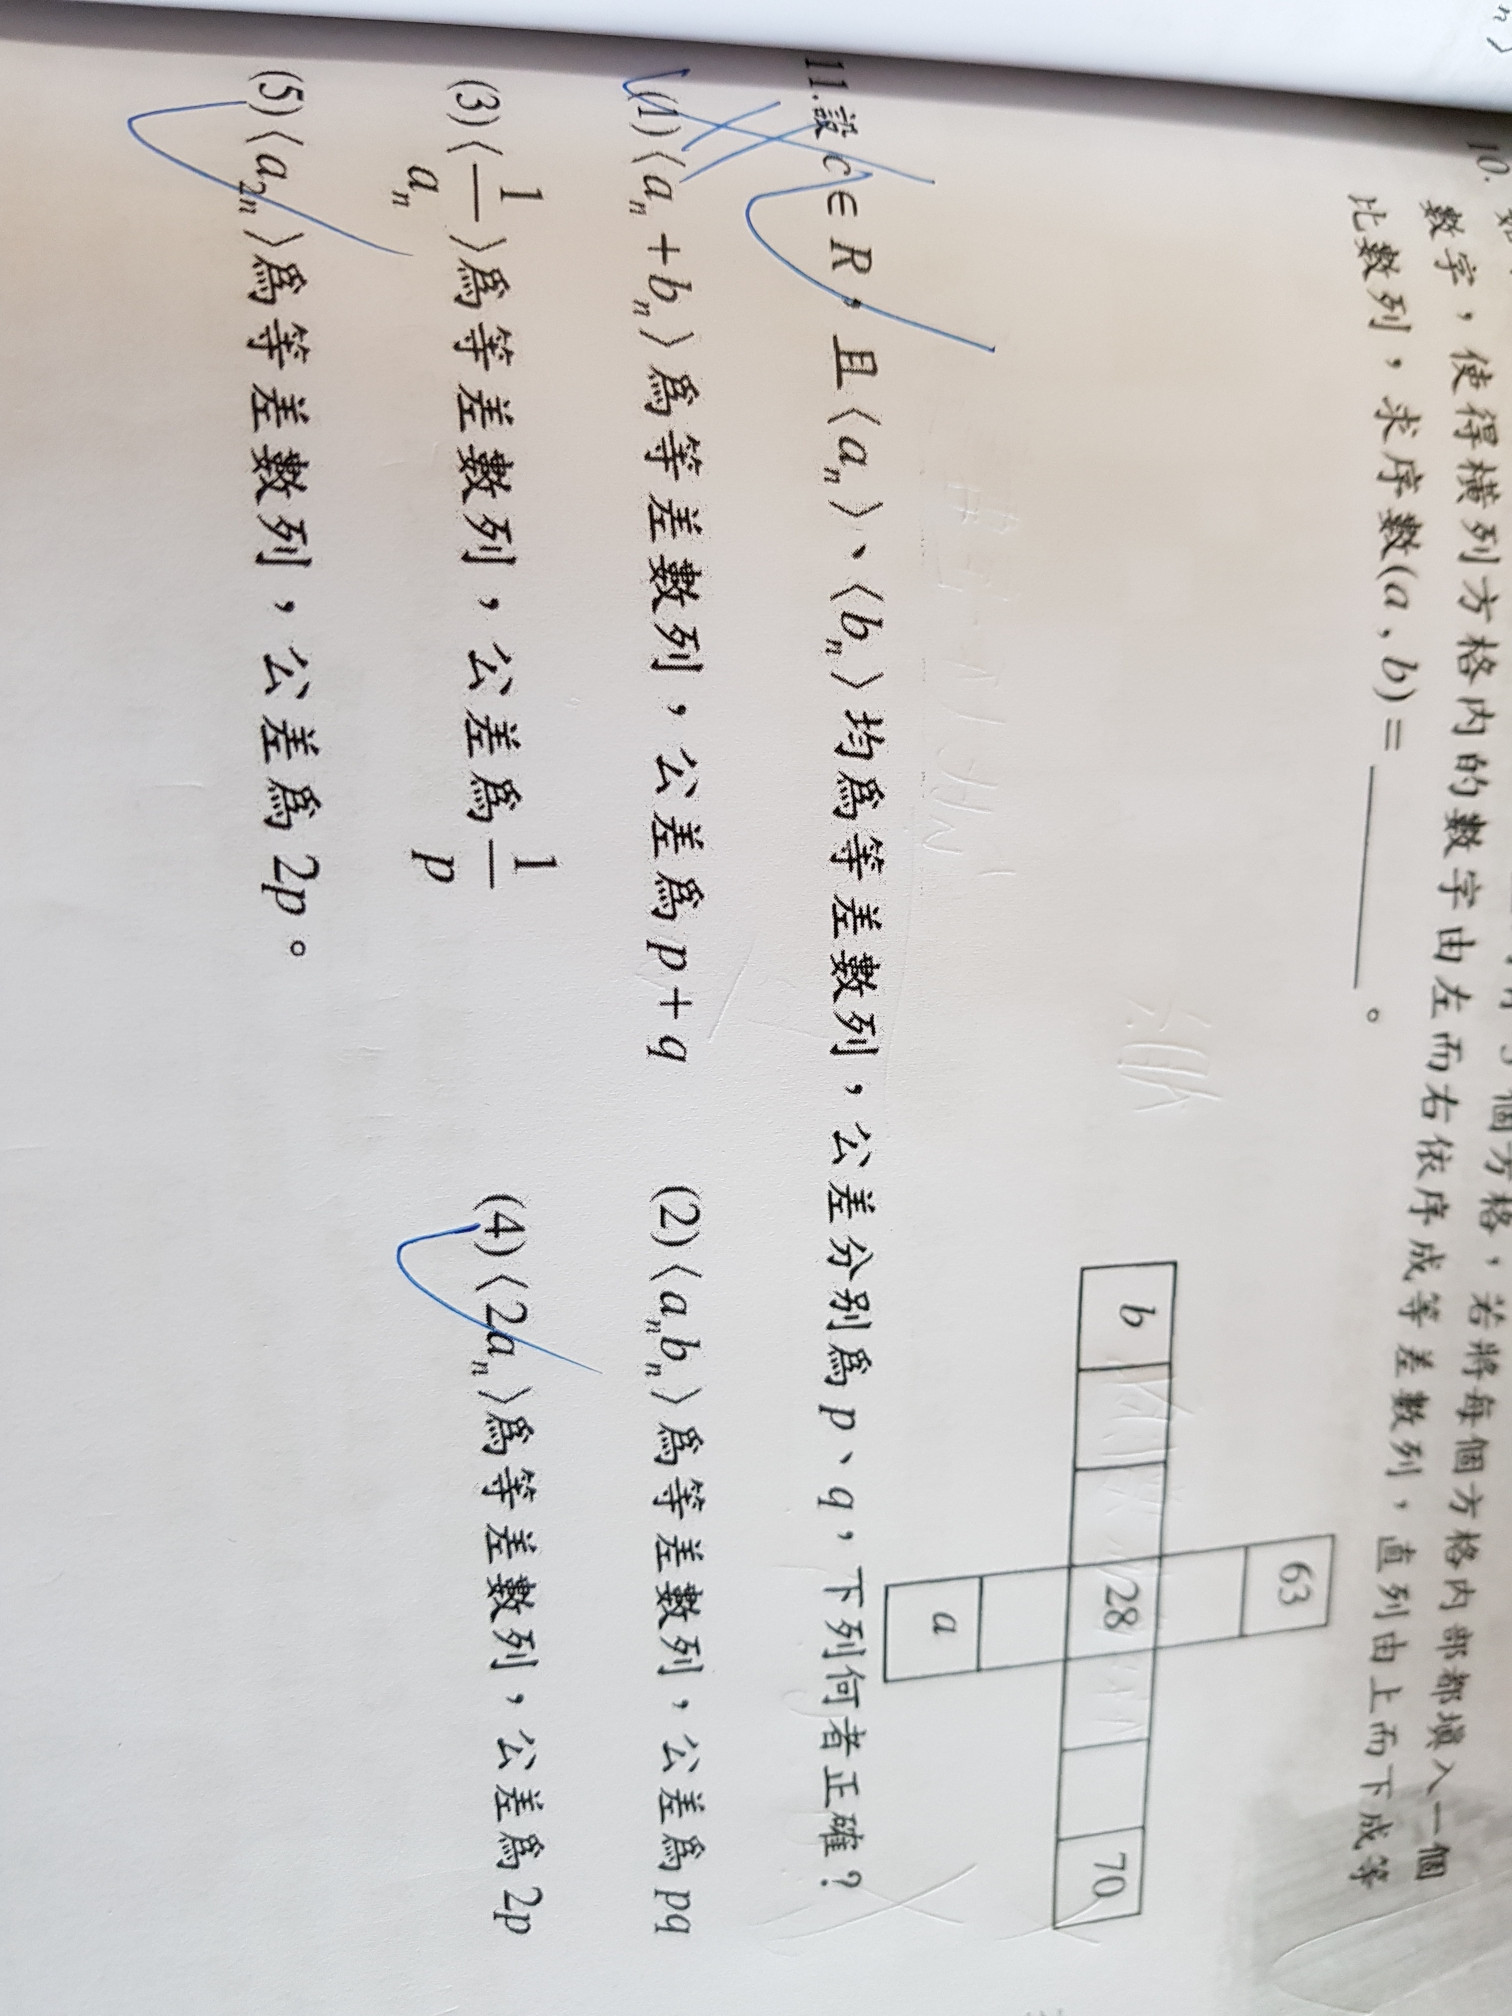 10.
數字，使得橫列方格內的數字由左而右依序成等差數列，直列由上而下成等
比數列，求序數(a、b)=______。
63
b 28 70
a
11.設c∈R，且⟨aₙ⟩、⟨bₙ⟩均爲等差數列，公差分別爲p、q，下列何者正確？
(1)⟨aₙ+bₙ⟩爲等差數列，公差爲p+q (2)⟨aₙbₙ⟩爲等差數列，公差爲pq
(3)⟨1/aₙ⟩爲等差數列，公差爲1/p (4)⟨2aₙ⟩爲等差數列，公差爲2p
(5)⟨a₂ₙ⟩爲等差數列，公差爲2p。